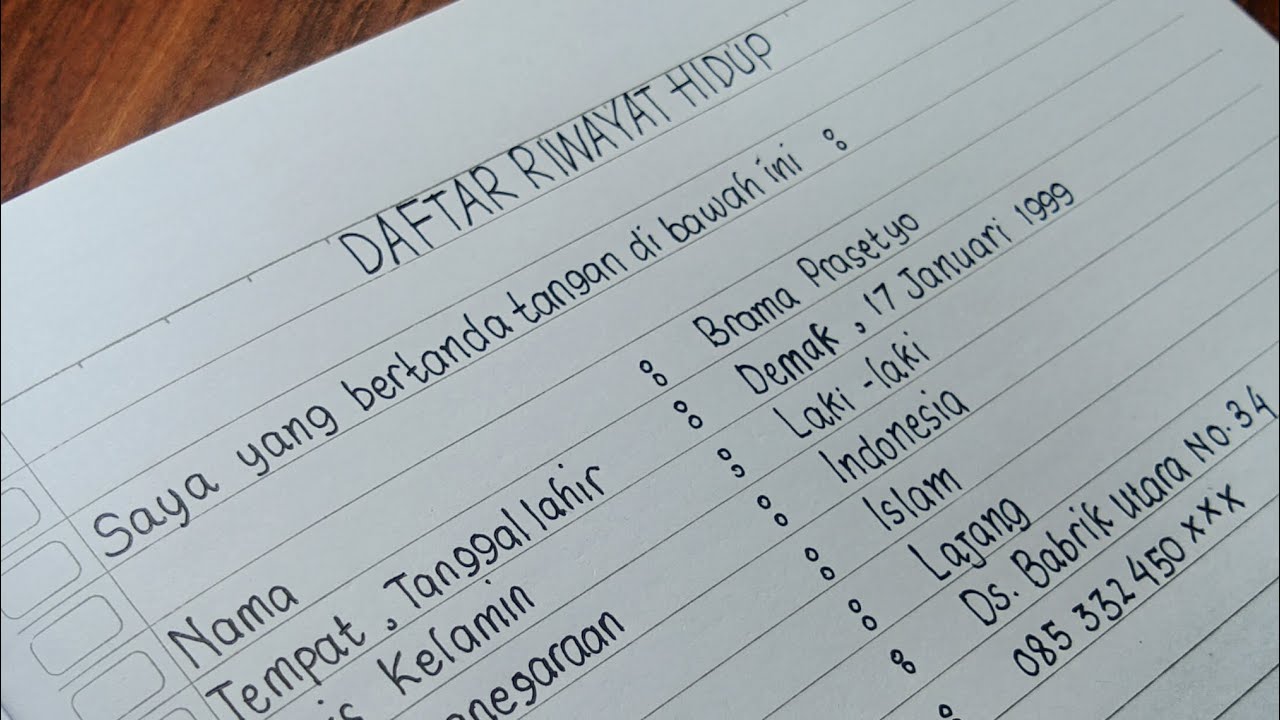 DAFTAR RIWAYAT HIDUP
Saya yang bertanda tangan di bawah ini :
Nama : Brama Prasetyo
Tempat, Tanggal lahir : Demak, 17 Januari 1999
Kelamin : Laki-laki
: Indonesia
: Islam
: Lajang
: Ds. Babrik Utara No. 34
: 085 332 450 xxx